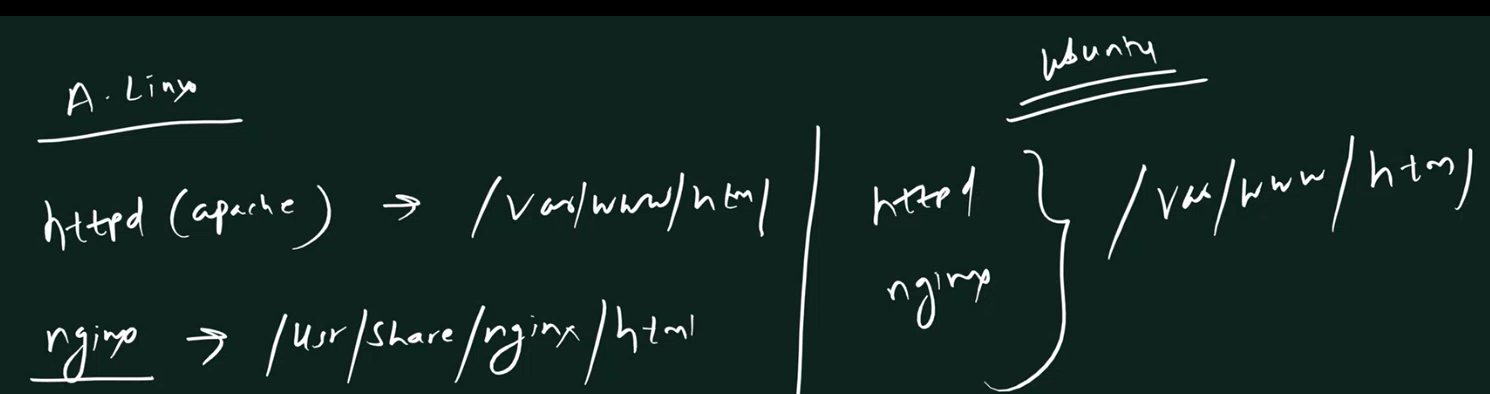 A. Linux
httpd (apache) → /var/www/html
nginx → /usr/share/nginx/html
Ubuntu
httpd
nginx
/var/www/html